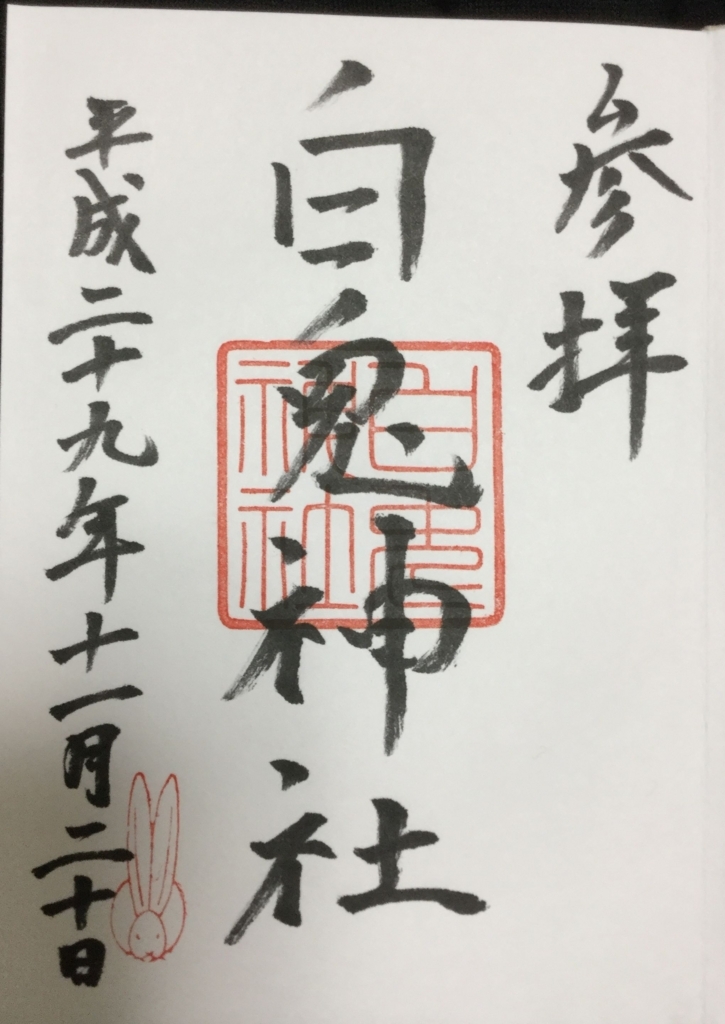 参拝
白兎神社
平成二十九年十一月二十日
白兎
神社